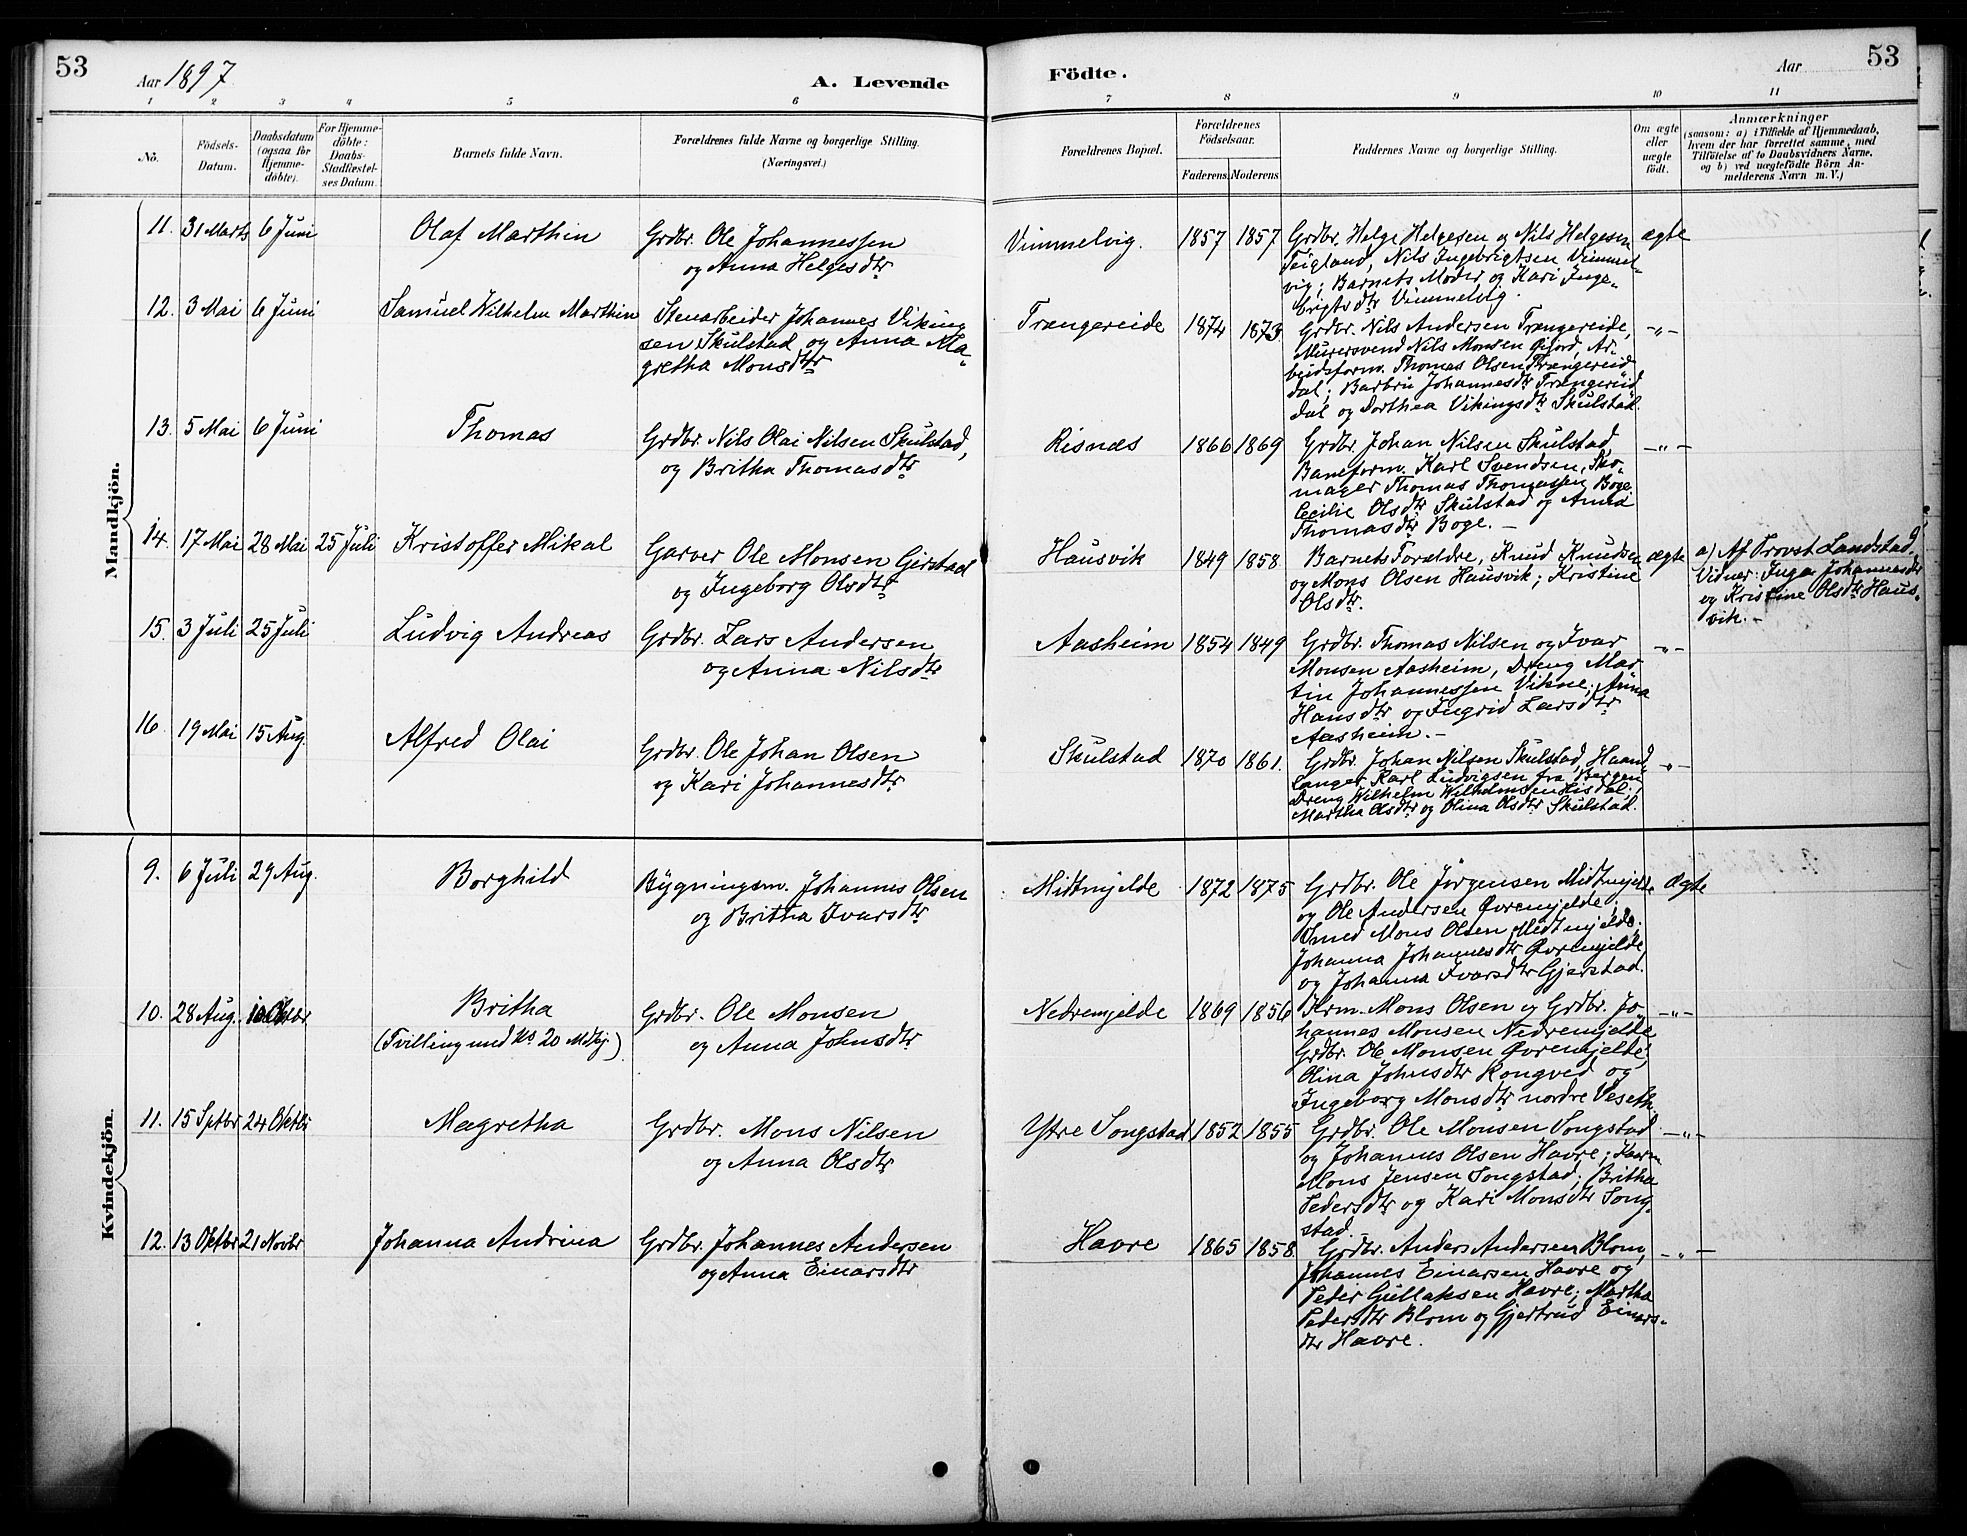 53
Aar 1897
A. Levende
Födte.
Aar
53
1 2 3 4 5 6 7 8 9 10 11
No.
Födsels-
Datum.
Daabsdatum
(ogsaa for
Hjemme-
döbte).
For Hjemme-
döbte:
Daabs-
Stadfæstel-
ses Datum.
Barnets fulde Navn.
Forældrenes fulde Navne og borgerlige Stilling.
(Næringsvei.)
Forældrenes Bopæl.
Forældrenes
Födselsaar.
Faderens. Moderens.
Faddernes Navne og borgerlige Stilling.
Om ægte
eller
uægte
födt.
Anmærkninger
(saasom: a) i Tilfælde af Hjemmedaab,
hvem der har forrettet samme, med
Tilföielse af to Daabsvidners Navne,
og b) ved uægtefödte Börn An-
melderens Navn m. V.)
Mandkjön.
11. 31 Marts 6 Juni Olaf Marthin
Grdbr. Ole Johannessen
og Anna Helgesdtr
Vimmelvig. 1857 1857
Grdbr. Helge Helgesen og Nils Helgesen
Teigland, Nils Ingebrigtsen Vimmel-
vig; Barnets Moder og Kari Inge-
brigtsdtr Vimmelvig.
ægte
12. 3 Mai 6 Juni Samuel Wilhelm Marthin
Stenarbeider Johannes Viking
sen Skulstad og Anna Ma-
gretha Monsdtr
Trængereide 1874 1873
Grdbr. Nils Andersen Trængereide,
Murersvend Nils Monsen Øfjord, Ar-
beidsform. Thomas Olsen Trængereid
dal; Barbru Johannesdtr Trængereid
dal og Dorthea Vikingsdtr Skulstad.
-"-
13. 5 Mai 6 Juni Thomas
Grdbr. Nils Olai Nilsen Skulstad,
og Britha Thomasdtr
Risnæs 1866 1869
Grdbr. Johan Nilsen Skulstad,
Baneform. Karl Svendsen, Sko-
mager Thomas Thomassen Boge,
Cecilie Olsdtr Skulstad og Anna
Thomasdtr Boge. -
-"-
14. 17 Mai 28 Mai 25 Juli Kristoffer Mikal
Garver Ole Monsen Gjerstad
og Ingeborg Olsdtr
Hausvik 1849 1858
Barnets Forældre, Knud Knudsen
og Mons Olsen Hausvik; Kristine
Olsdtr.
ægte
a) Af Provst Landstad.
Vidner: Inga Johannesdtr
og Kristine Olsdtr Haus-
vik. -
15. 3 Juli 25 Juli Ludvig Andreas
Grdbr. Lars Andersen
og Anna Nilsdtr
Aasheim 1854 1849
Grdbr. Thomas Nilsen og Ivar
Monsen Aasheim, Dreng Mar-
tin Johannessen Vikne; Anna
Hansdtr og Ingrid Larsdtr
Aasheim. -
-"-
16. 19 Mai 15 Aug. Alfred Olai
Grdbr. Ole Johan Olsen
og Kari Johannesdtr
Skulstad 1870 1861.
Grdbr. Johan Nilsen Skulstad, Haand-
langer Karl Ludvigsen fra Bergen,
Dreng Wilhelm Wilhelmsen Hisdal;
Martha Olsdtr og Olina Olsdtr Skulstad.
-"-
Kvindekjön.
9. 6 Juli 29 Aug. Borghild
Bygningsm. Johannes Olsen
og Britha Ivarsdtr
Midtmjelde 1872 1875
Grdbr. Ole Jørgensen Midtmjelde
og Ole Andersen Øvremjelde;
Smed Mons Olsen Midtmjelde;
Johanna Johannesdtr Øvremjelde
og Johanna Ivarsdtr Gjerstad.
Ægte
10. 28 Aug. 10 Oktbr Britha
(Tvilling med No 20 Mdkj.)
Grdbr. Ole Monsen
og Anna Johnsdtr
Nedremjelde 1869 1856
Krm. Mons Olsen og Grdbr. Jo-
hannes Monsen Nedremjelde
Grdbr. Ole Monsen Øvremjelde;
Olina Johnsdtr Rongved og
Ingeborg Monsdtr nordre Veseth.
-"-
11. 15 Sptbr 24 Oktbr Magretha
Grdbr. Mons Nilsen
og Anna Olsdtr
Ytre Songstad 1852 1855
Grdbr. Ole Monsen Songstad
og Johannes Olsen Havre;
Mons Jensen Songstad; Britha
Pedersdtr og Kari Monsdtr Song-
stad.
-"-
12. 13 Oktbr 21 Novbr Johanna Andrina
Grdbr. Johannes Andersen
og Anna Einarsdtr
Havre 1865 1858
Grdbr. Anders Andersen Blom,
Johannes Einarsen Havre og
Peder Gullaksen Havre; Martha
Pedersdtr Blom og Gjertrud Einars-
dtr Havre.
-"-